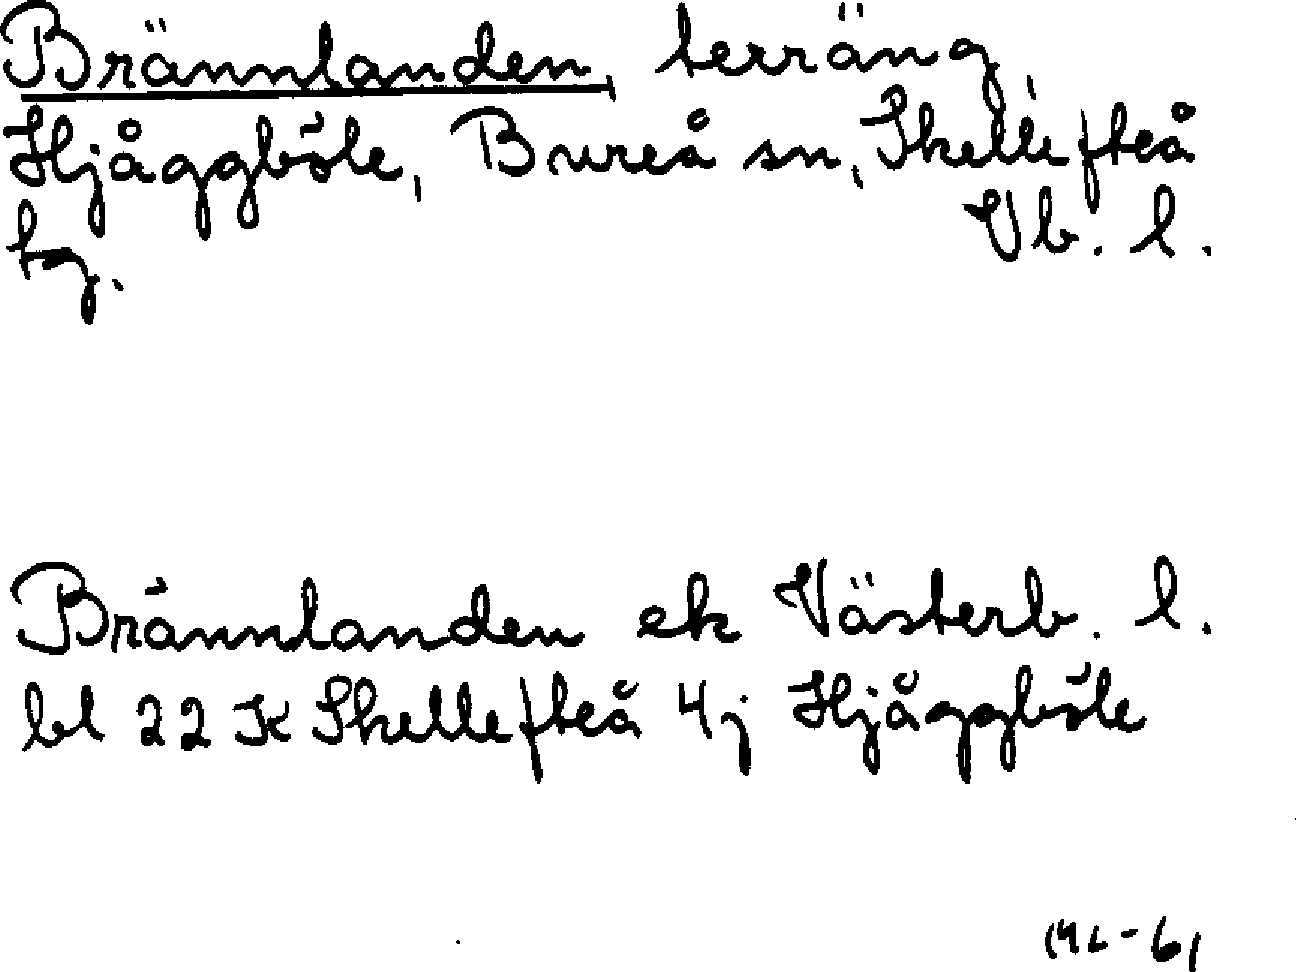 Brännlanden, terräng,
Hjåggböle, Bureå sn, Skellefteå
tg. Vb. l.
Brännlanden ek Västerb. l.
bl 22 K Skellefteå 4j Hjåggböle